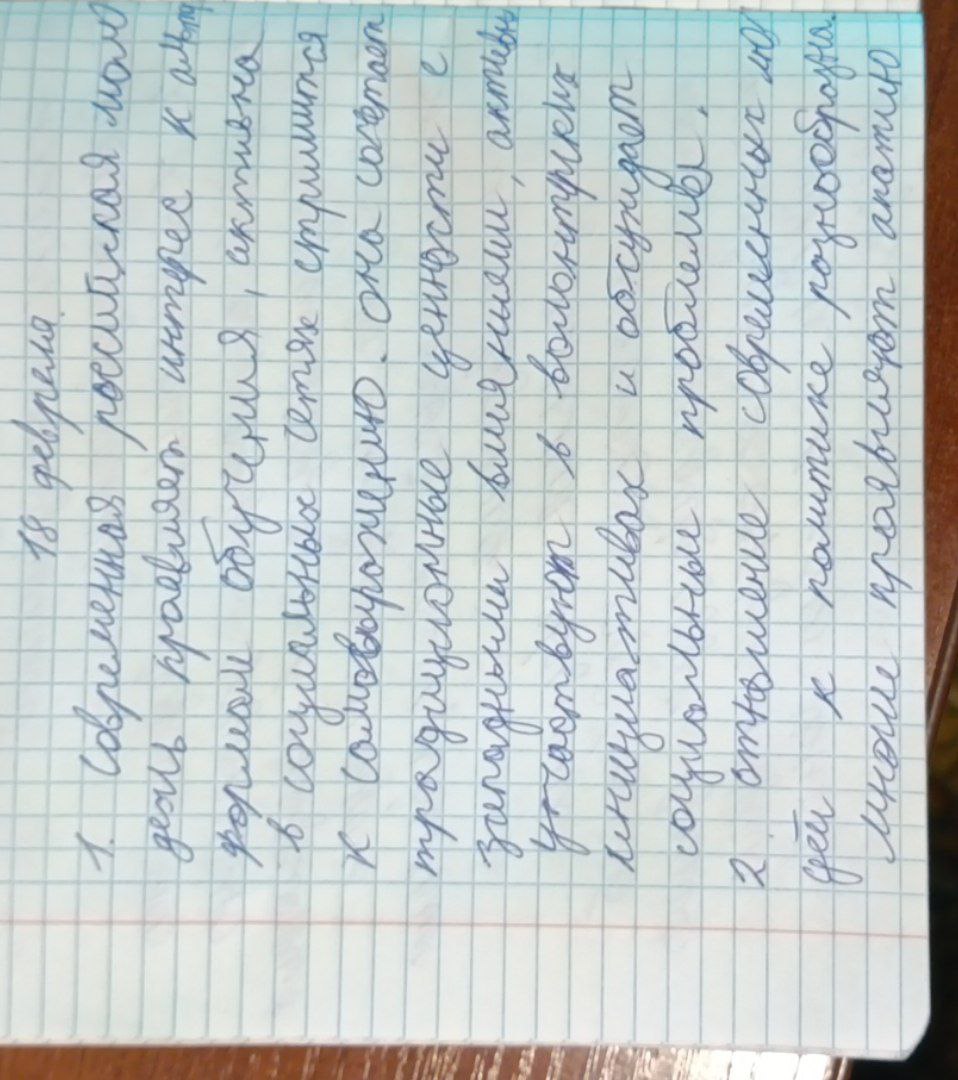 18 февраля.
1. Современная российская моло
дежь проявляет интерес к
формам обучения, активна
в социальных сетях стримится
к самовыражению. она сочетает
традиционные ценности с
западными влияниями, активн
участвуют в волонтрских
инициативах и обсуждает
социальные проблемы.
2 отношение современных лю
дей к политике разнообразна.
многие проявляют апатию